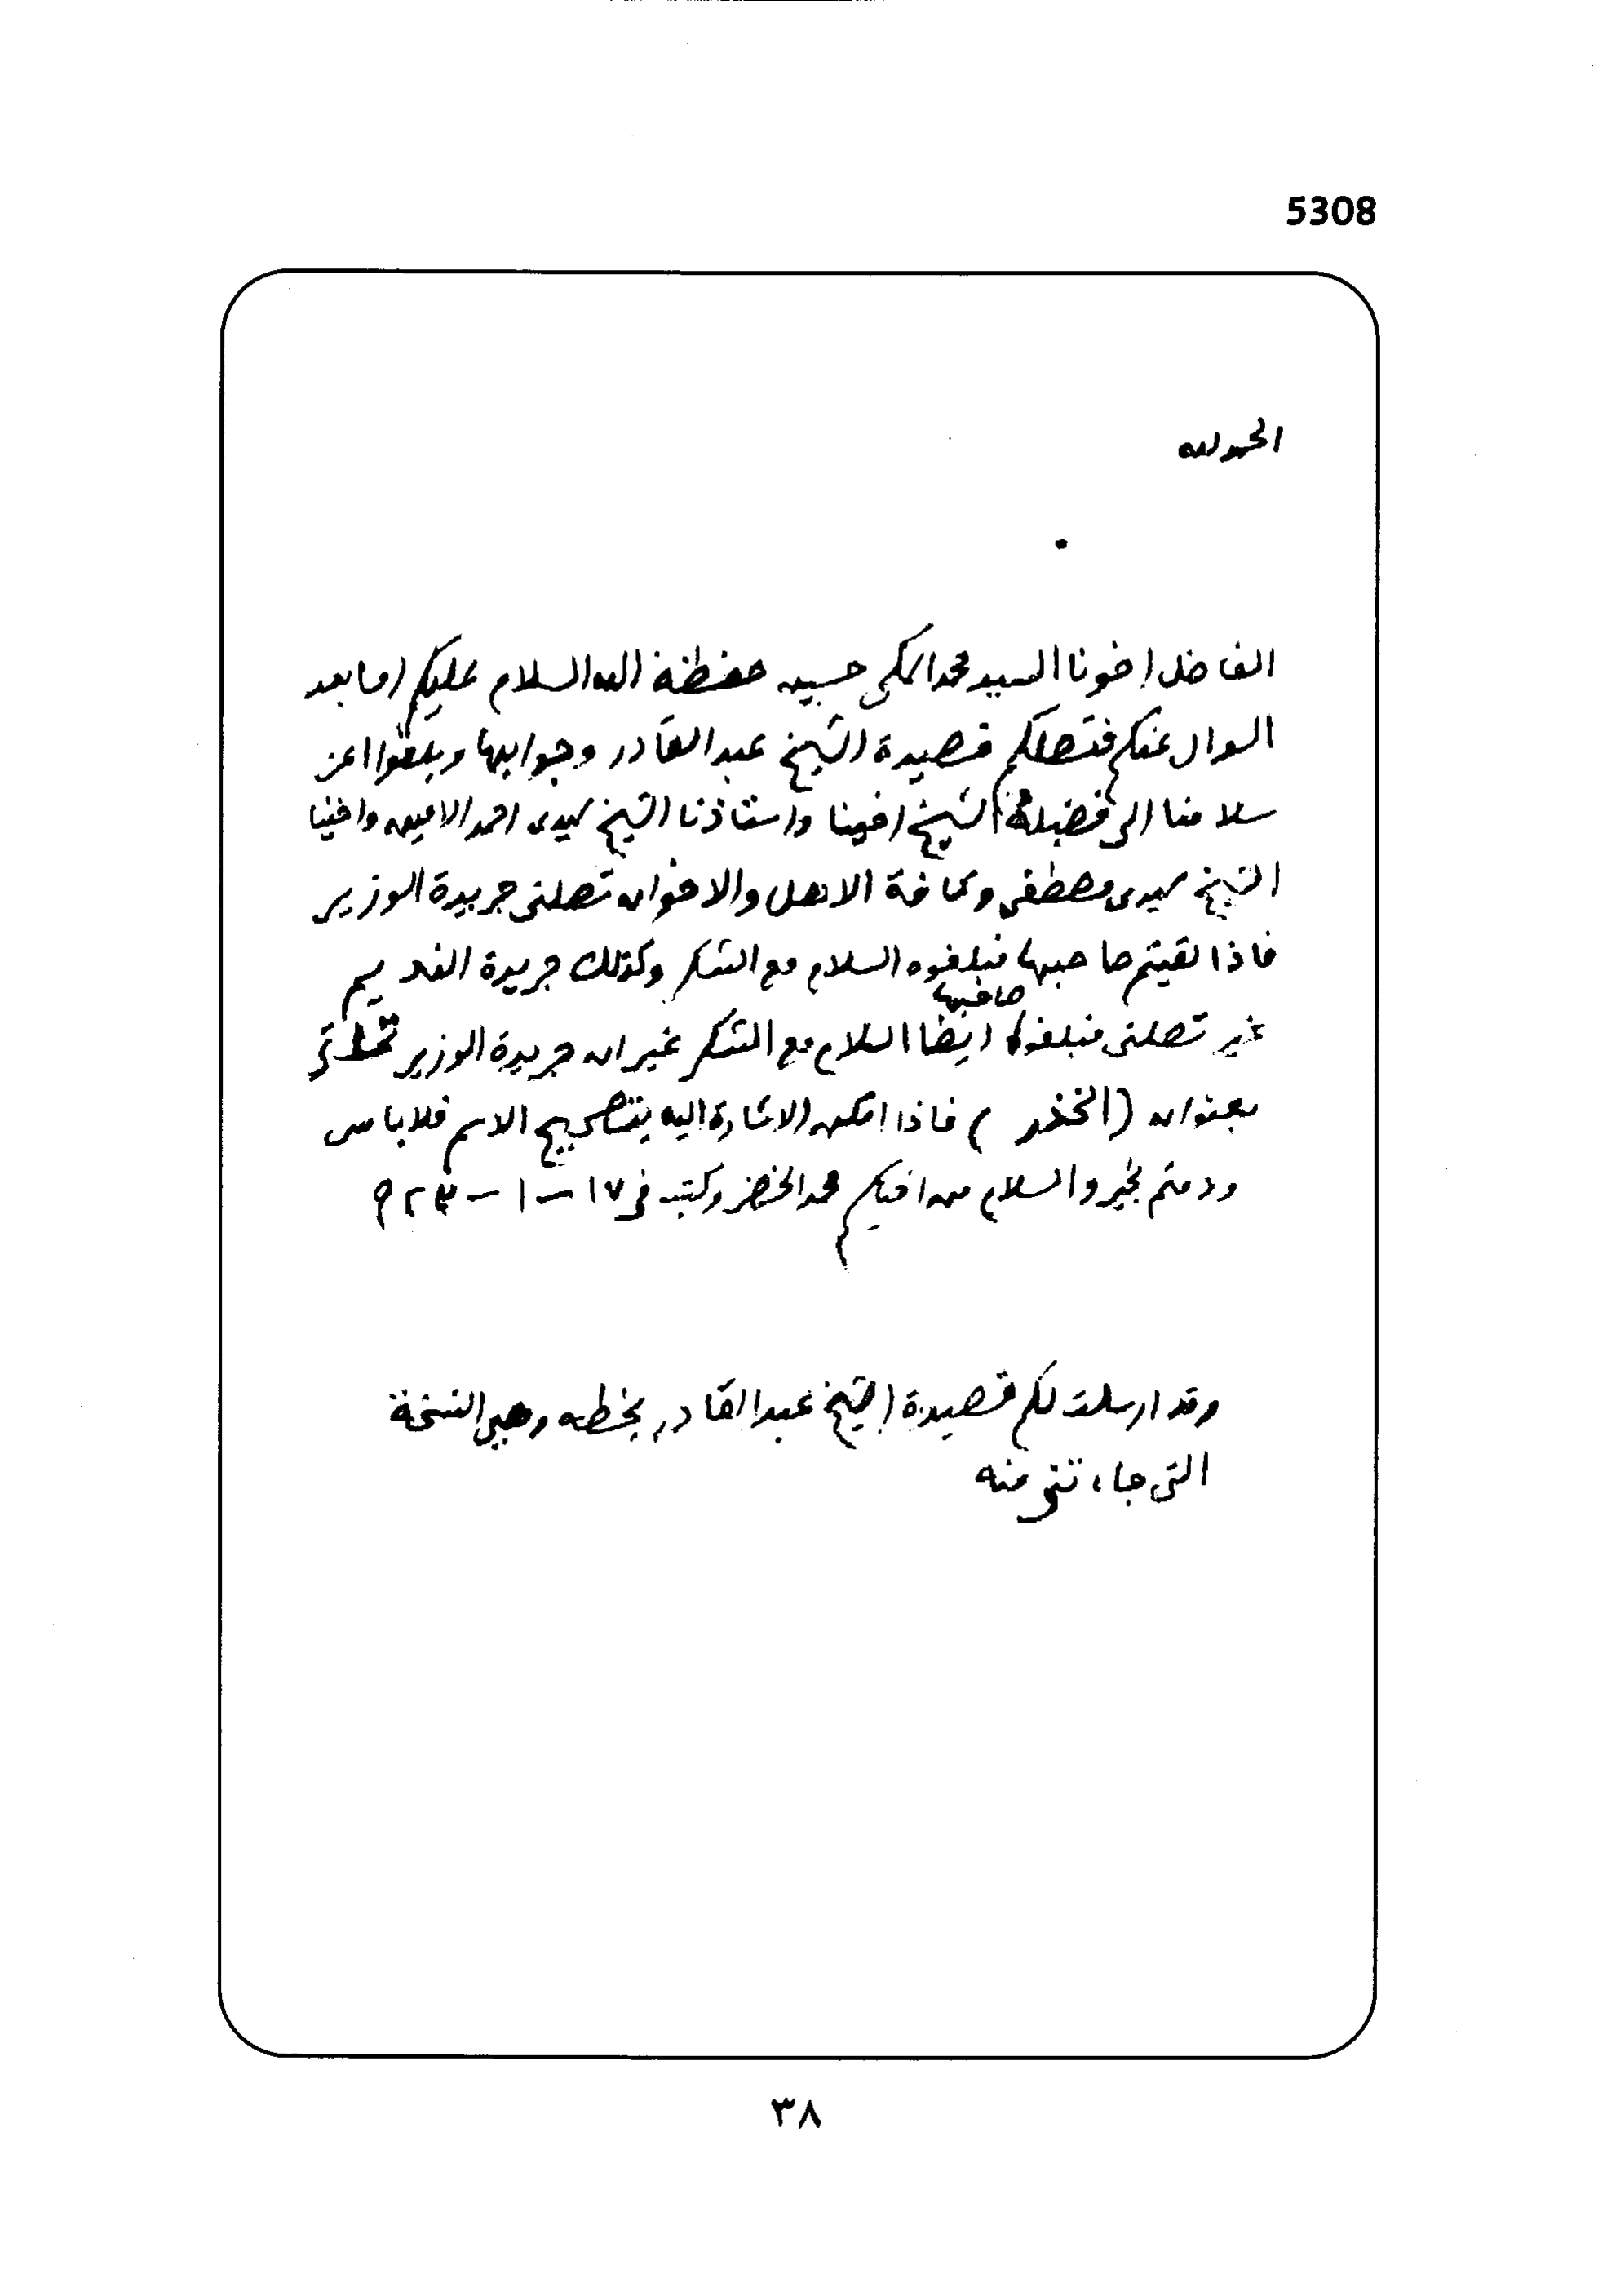 5308
الحمد لله
الفاضل اخونا السيد محمد المكي حسين حفظه الله السلام عليكم اما بعد
السوال عنكم فتصلكم قصيدة الشيخ عبد القادر وجوابها وبلغوا اعز
سلامنا الى فضيلة الشيخ اخينا واستاذنا الشيخ سيدى احمد الامين واخينا
الشيخ سيدى مصطفى وكافة الاهل والاخوان تصلنى جريدة الوزير
فاذا لقيتم صاحبها فبلغوه السلام مع الشكر وكذلك جريدة النديم
صاحبها
تصلنى فبلغوا ايضا السلام مع الشكر غير ان جريدة الوزير تاتى
بعنوان (الخذر) فاذا امكن الاشارة اليه بتصحيح الاسم فلا باس
ودمتم بخير والسلام من اخيكم محمد الخضر وكتب فى ١٧ - ١ - ٩٢٣
وقد ارسلت لكم قصيدة الشيخ عبد القادر بخطه وهي النسخة
التى جاءتنى منه
٣٨